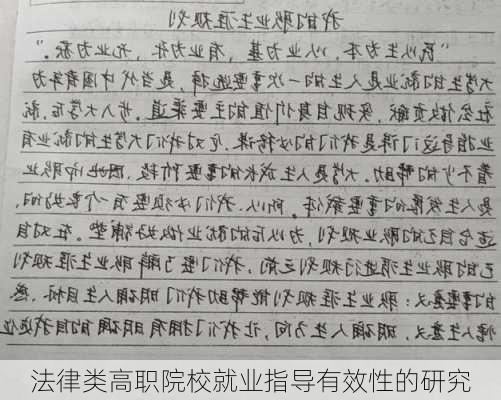 我的职业生涯规划
“民以生为本，以业为基，有业为，无业为。”
大学生的就业是人生的一次重要选择，是当代中国青年为
社会做贡献、实现自身价值的主要渠道。步入大学后，就
业指导这门课是我们的必修课，它对我们大学生的就业有
着不少的帮助。大学是人生成长的重要阶段，因此职业
是人生的重要载体。所以，我们必须要有一个良好的、
适合自己的职业规划，为以后的就业做好铺垫。在对自
己的职业生涯进行规划之前，我们要了解职业生涯规划
的重要意义：职业生涯规划能帮助我们明确人生目标，感
悟人生意义，明确人生方向，让我们拥有明确的自我定位
法律类高职院校就业指导有效性的研究